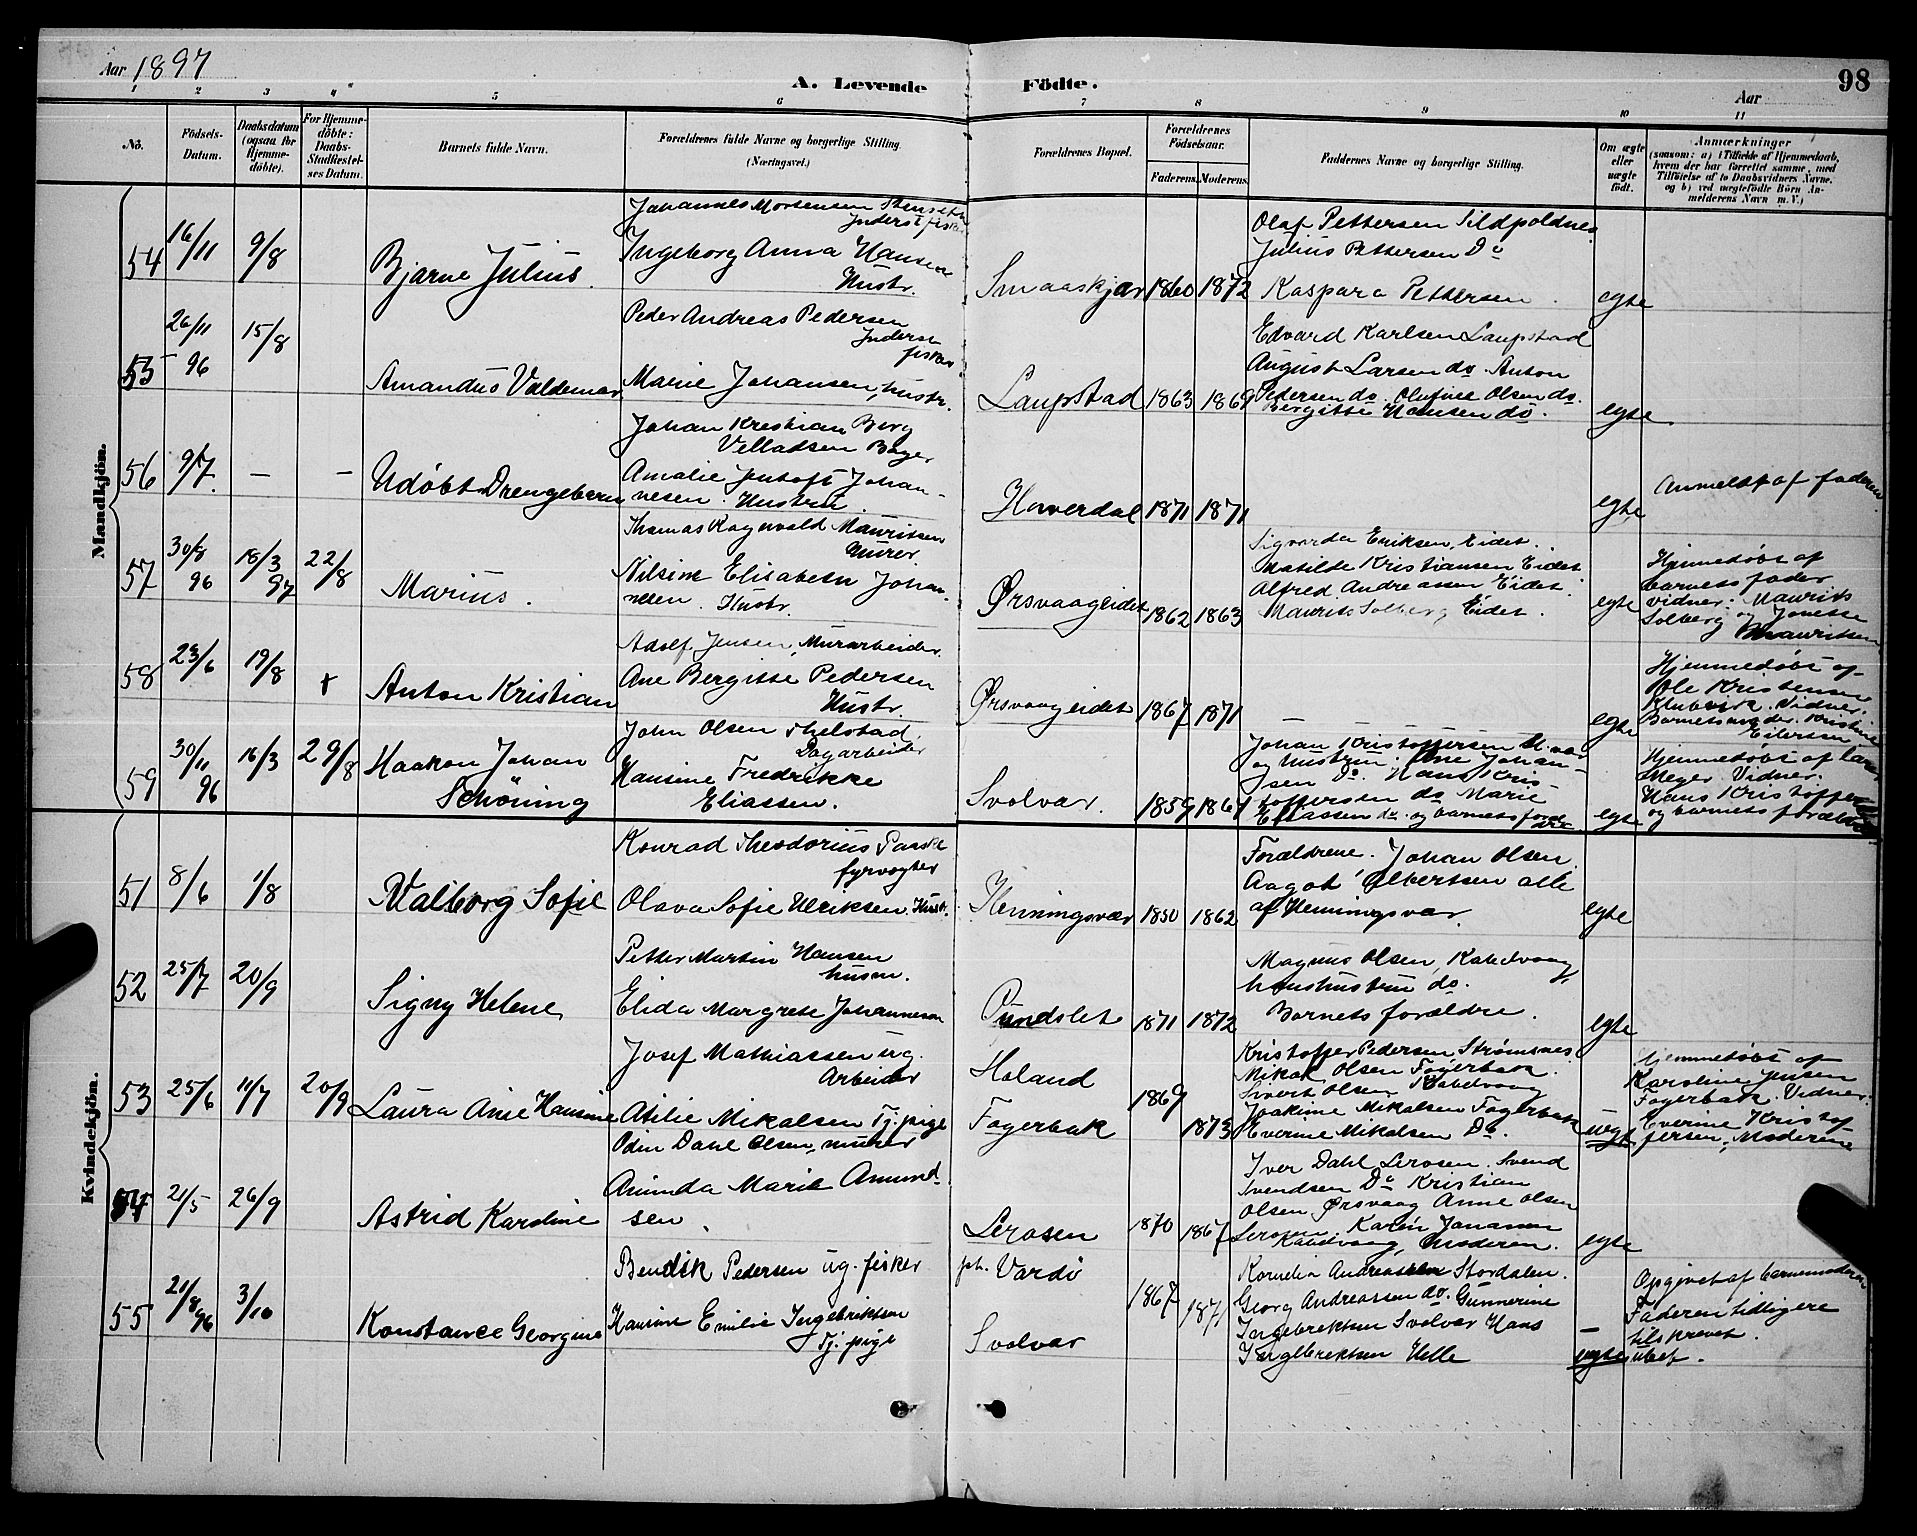 Aar 1897
A. Levende Födte.
Aar
98
1 2 3 4 5 6 7 8 9 10 11
No.
Födsels-Datum.
Daabsdatum (ogsaa for Hjemme-döbte).
For Hjemme-döbte: Daabs-Stadfæstel-ses Datum.
Barnets fulde Navn.
Forældrenes fulde Navne og borgerlige Stilling. (Næringsvei.)
Forældrenes Bopæl.
Forældrenes Födselsaar.
Faderens. Moderens.
Faddernes Navne og borgerlige Stilling.
Om ægte eller uægte födt.
Anmærkninger
(saasom: a) i Tilfælde af Hjemmedaab,
hvem der har forrettet samme, med
Tilföielse af to Daabsvidners Navne,
og b) ved uægtefödte Börn An-
melderens Navn m. V.)
Mandkjön.
54 16/11 9/8 Bjarne Julius.
Johannes Mortensen
Inderst fisker
Ingeborg Anna Hansen
Hustr.
Smaaskjær 1860 1872
Olaf Pettersen Sildpoldnes
Julius Pettersen Do
Kaspara Pettersen.
egte
55 26/11 96 15/8 Amandus Valdemar
Peder Andreas Pedersen
Inderst
fisker
Marie Johansen, hustr.
Laupstad 1863 1869
Edvard Karlsen Laupstad
August Larsen do. Anton
Pedersen do. Olufine Olsen do.
Bergitte Hansen do.
egte
56 9/7 - - Udöbt Drengebarn
Johan Kristian Berg
Velladsen Bager
Amalie Jentoft Johan-
nesen. Hustru
Hoverdal 1871 1871
egte
Anmeldt af faderen
57 30/8 96 18/3 97 22/8 Marius.
Thomas Ragnvald Mauritsen
Murer
Nilsine Elisabeth Johan-
nesen. Hustr.
Ørsvaageidet 1862 1863
Sigvarda Eriksen, Eidet.
Matilde Kristiansen Eidet
Alfred Andreassen Eidet.
Maurits Solberg, Eidet.
egte
Hjemmedöbt af
barnets fader
vidner: Maurits
Solberg og Jonette
Mauritsen
58 23/6 19/8 + Anton Kristian
Adolf Jensen, Murarbeider.
Ane Bergitte Pedersen
Hustr.
Ørsvaageidet 1867 1871
-
egte
Hjemmedöbt af
Ole Kristensen
Klubvik. Vidner.
Barnets moder. Kristine
Eilertsen
59 30/11 96 16/3 29/8 Haakon Johan
Schöning
John Olsen
Dagarbeider
Hansine Fredrikke
Eliassen.
Svolvær. 1859 1861
Johan Kristoffersen
og hustru. Ane Johan-
sen Do. Hans Kris-
toffersen do Marie
Eliassen do. og barnets foræl
dre
egte
Hjemmedöbt af
Meyer. Vidner.
Hans Kristoffersen
og barnets forældre
Kvindekjön.
51 8/6 1/8 Valborg Sofie
Konrad Theodorius Paaske
fyrvogter
Olava Sofie Ulriksen. Hustr.
Henningsvær 1850 1862
Forældrene. Johan Olsen,
Aagot Olbertsen alle
af Henningsvær.
egte
52 25/7 20/9 Signy Helene
Petter Martin Hansen
husm.
Elida Margrete Johannesen
Pundslet 1871 1872
Magnus Olsen, Kabelvaag,
hans hustru do.
Barnets forældre.
egte
53 25/6 11/7 20/9 Laura Anie Hansine
Josef Mathiassen ug.
Arbeider
Atilie Mikalsen Tj. pige
Holand
Fagerbak
1869 1873
Kristoffer Pedersen Strømsnes
Mikal Olsen Fagerbak.
Sivert Olsen Kabelvaag
Joakime Mikalsen Fagerbak
Everine Mikalsen Do.
uegte
Hjemmedöbt af
Karoline Jensen
Fagerbak. Vidner.
Everine Kristof-
fersen, Moderene
54 21/5 26/9 Astrid Karoline
Odin Dahl Olsen, murer
Aninda Marie Amund-
sen.
Lerosen 1870 1867
Iver Dahl Lerosen. Svend
Svendsen Do Kristian
Olsen, Ørsvaag Anne Olsen
Lerosen Karen Johansen
Kabelvaag, Moderen.
egte
55 21/8 96 3/10 Konstance Georgine
Bendik Pedersen ug. fisker
Hansine Emilie Ingebriktsen
Tj. pige
pt. Vardö
Svolvær
1867 1871
Kornelia Andreassen Stordalen.
Georg Andreassen do. Gunnerine
Ingebrektsen Svolvær Hans
Ingebrektsen Helle
uegte
Opgivet af barnemoderen
Faderen tidligere
ubef.